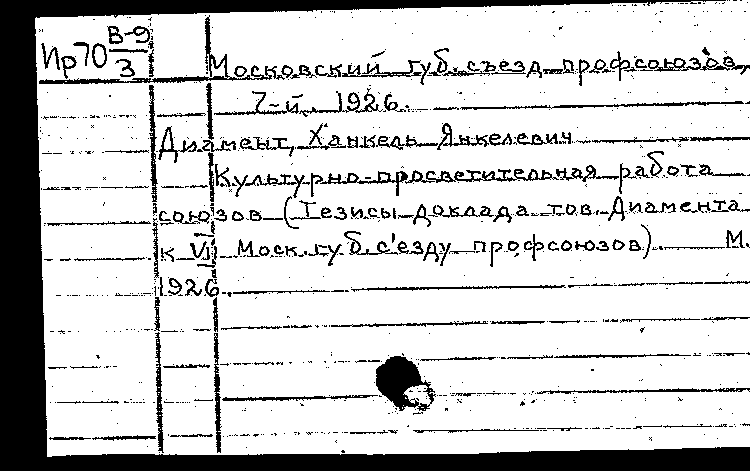 Ир70 В-9/3
Московский губ. съезд профсоюзов,
7-й. 1926.
Диамент, Ханкель Янкелевич
Культурно-просветительная работа
союзов (Тезисы доклада тов. Диамента
к VII Моск. губ. с'езду профсоюзов). М.
1926.